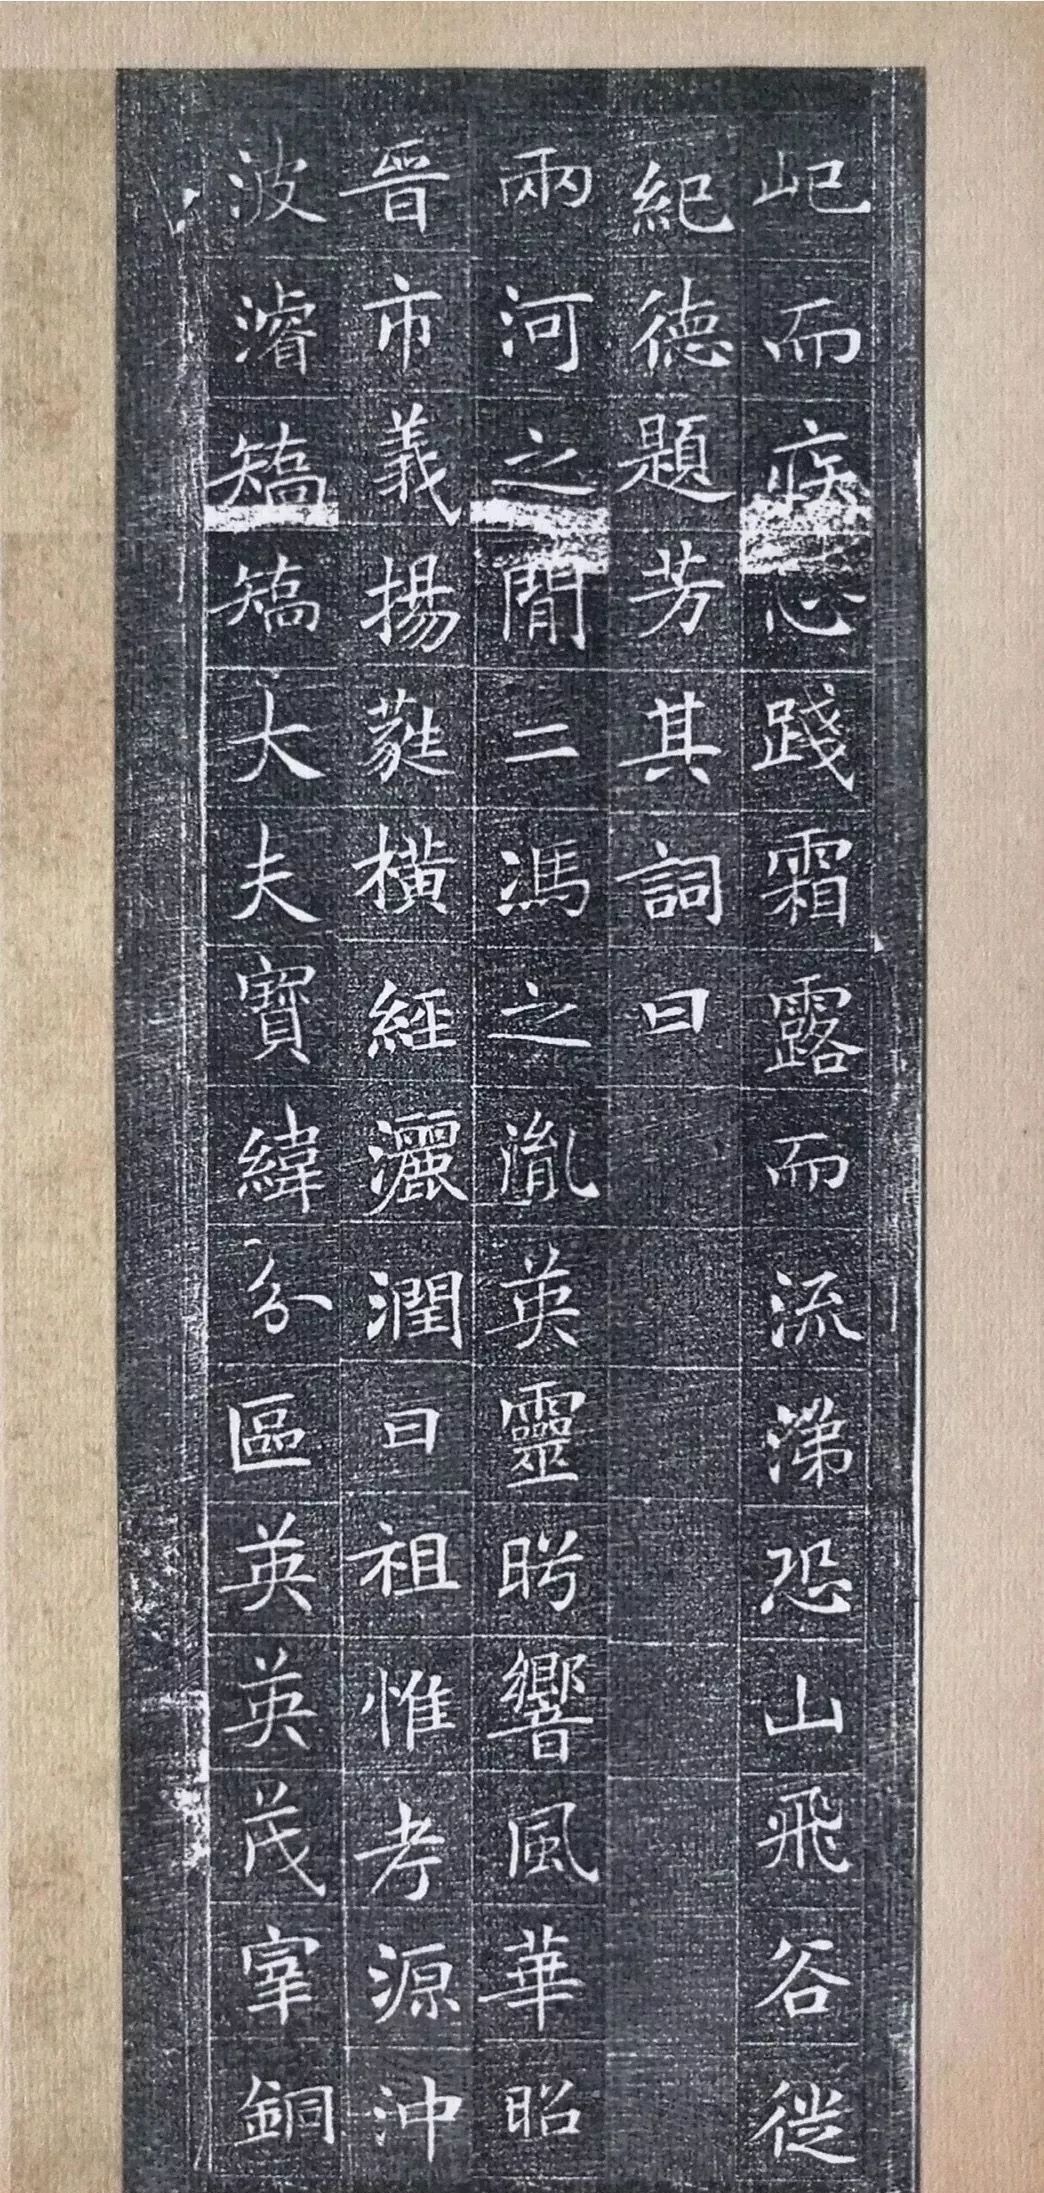 屺而疚心踐霜露而流涕恐山飛谷從
紀德題芳其詞曰
兩河之間二馮之胤英靈盻響風華昭
晉市義揚蕤橫經灑潤曰祖惟考源沖
波濬矯矯大夫寶緯分區英英茂宰銅